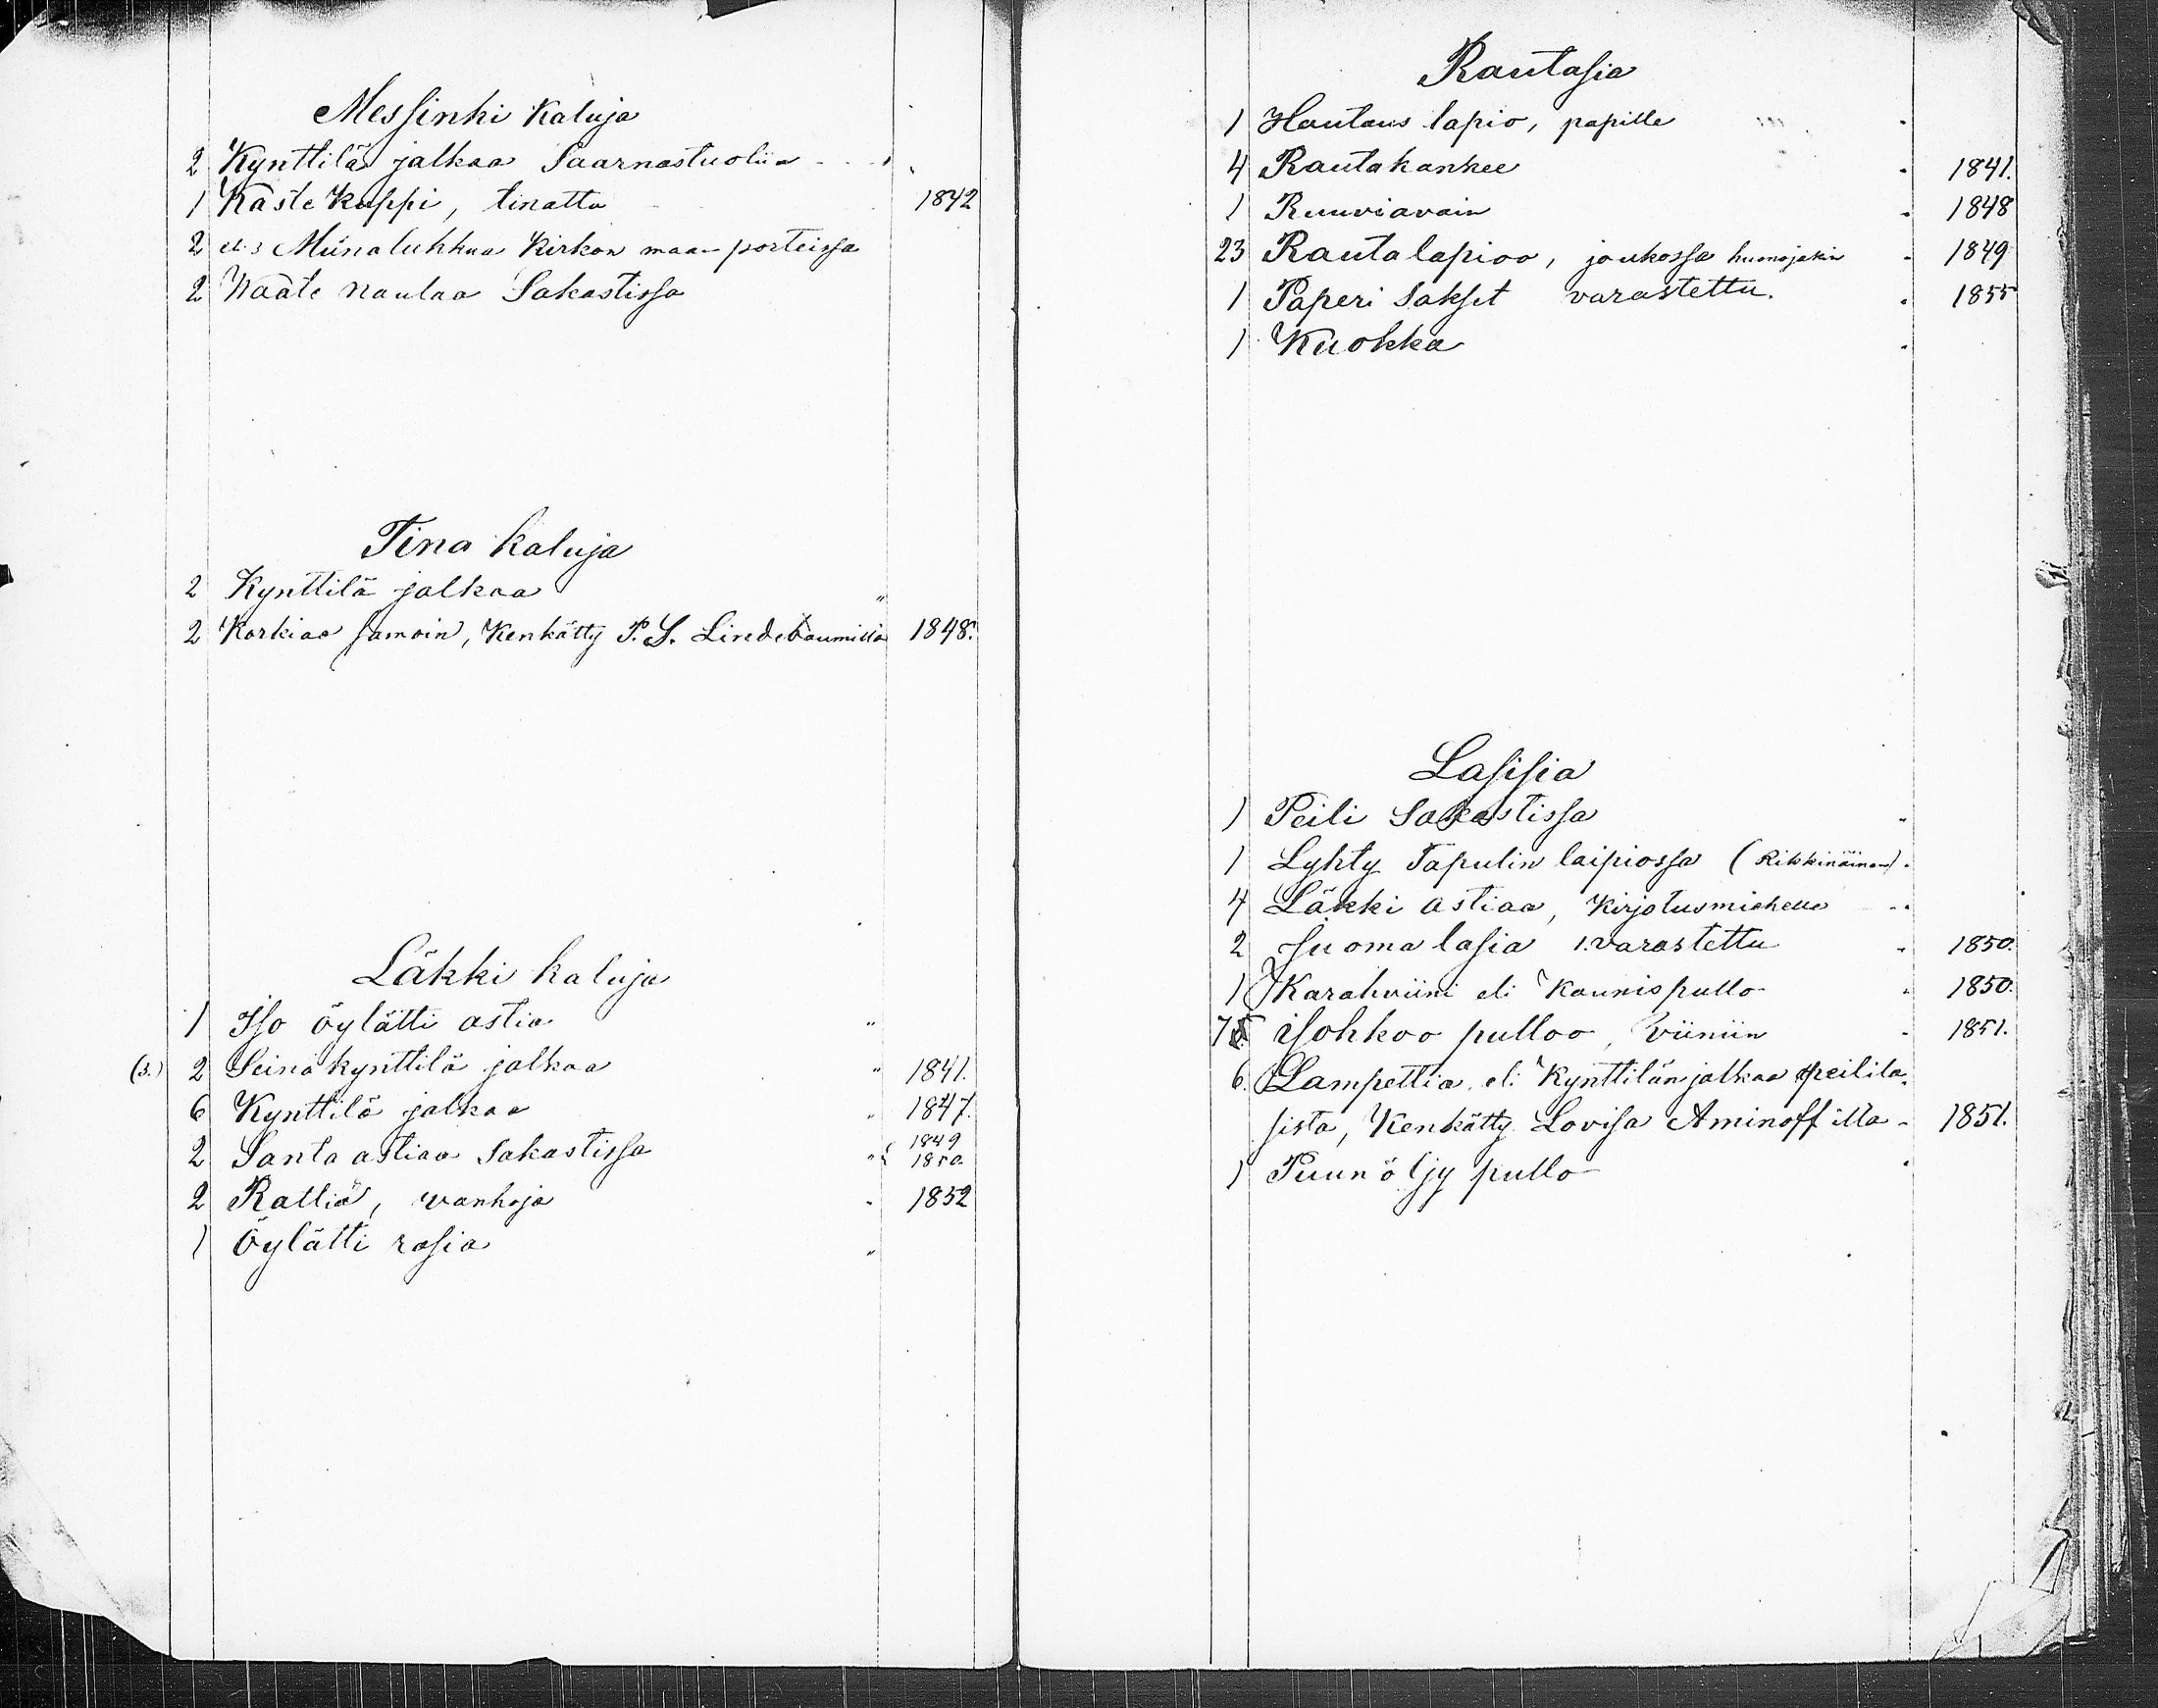 Messinki Kaluja
2 Kynttilä jalkaa Saarnastuolia
1 Kaste Kuppi, tinattu 1842
2 Muna lukkua Kirkon maan porteissa
2 Waate naulaa Sakastissa
Tina kaluja
2 Kynttilä jalkaa "
2 Korkiaa samoin, Kenkätty P. S. Lindebaumilla 1848.
Läkki kaluja
1 Iso öylätti astia "
(3.) 2 Seinä kynttilä jalkaa " 1841.
6 Kynttilä jalkaa " 1847.
2 Santa astiaa Sakastissa " 1849
1850.
2 Rattiä, wanhoja 1852
1 Öylätti rasia "
Rautasia
1 Hautaus lapio, papille
4 Rautakankee 1841.
1 Ruuviavain 1848
23 Rautalapioo, joukossa huonojakin 1849
1 Paperi Sakset varastettu. 1855
1 Kuokka
Lasisia
1 Peili Sakastissa
1 Lyhty Tapulin laipiossa (Rikkinäinen)
4 Läkki astiaa, Kirjotusmiehelle
2 Juoma lasia 1. varastettu 1850.
1 Karahviini eli Kaunispullo 1850.
7 isohkoo pulloo, viiniin 1851.
6. Lampettia eli Kynttilän jalkaa peilila-
sista, Kenkätty Lovisa Aminoffilla 1851.
1 Puunöljy pullo